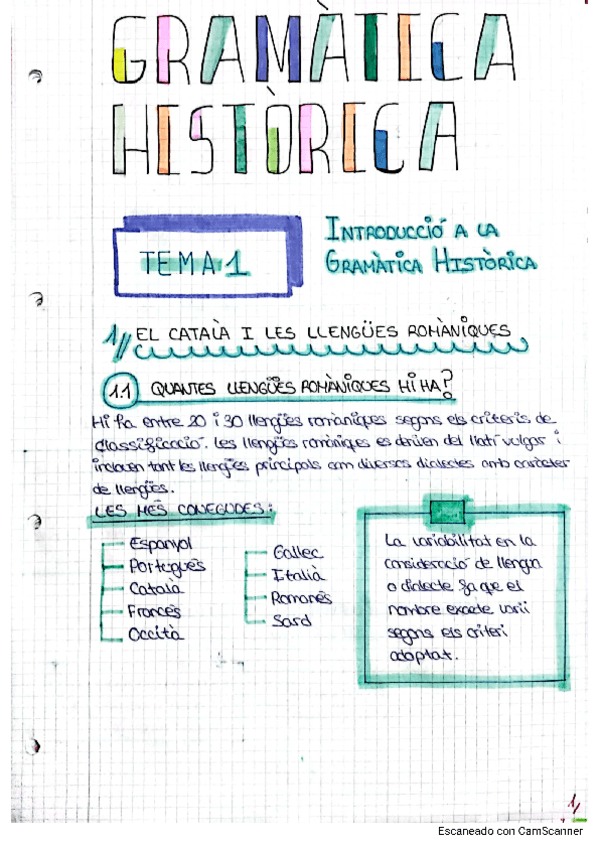 GRAMÀTICA
HISTÒRICA
TEMA 1
INTRODUCCIÓ A LA
GRAMÀTICA HISTÒRICA
1// EL CATALÀ I LES LLENGÜES ROMÀNIQUES
1.1 QUANTES LLENGÜES ROMÀNIQUES HI HA?
Hi ha entre 20 i 30 llengües romàniques segons els criteris de
classificació. Les llengües romàniques es deriven del llatí vulgar i
inclouen tant les llengües principals com diversos dialectes amb caràcter
de llengües.
LES MÉS CONEGUDES:
Espanyol
Portuguès
Català
Francés
Occità
Gallec
Italià
Romanés
Sard
La variabilitat en la
consideració de llengua
o dialecte fa que el
nombre exacte varii
segons els criteri
adoptat.
1/
Escaneado con CamScanner